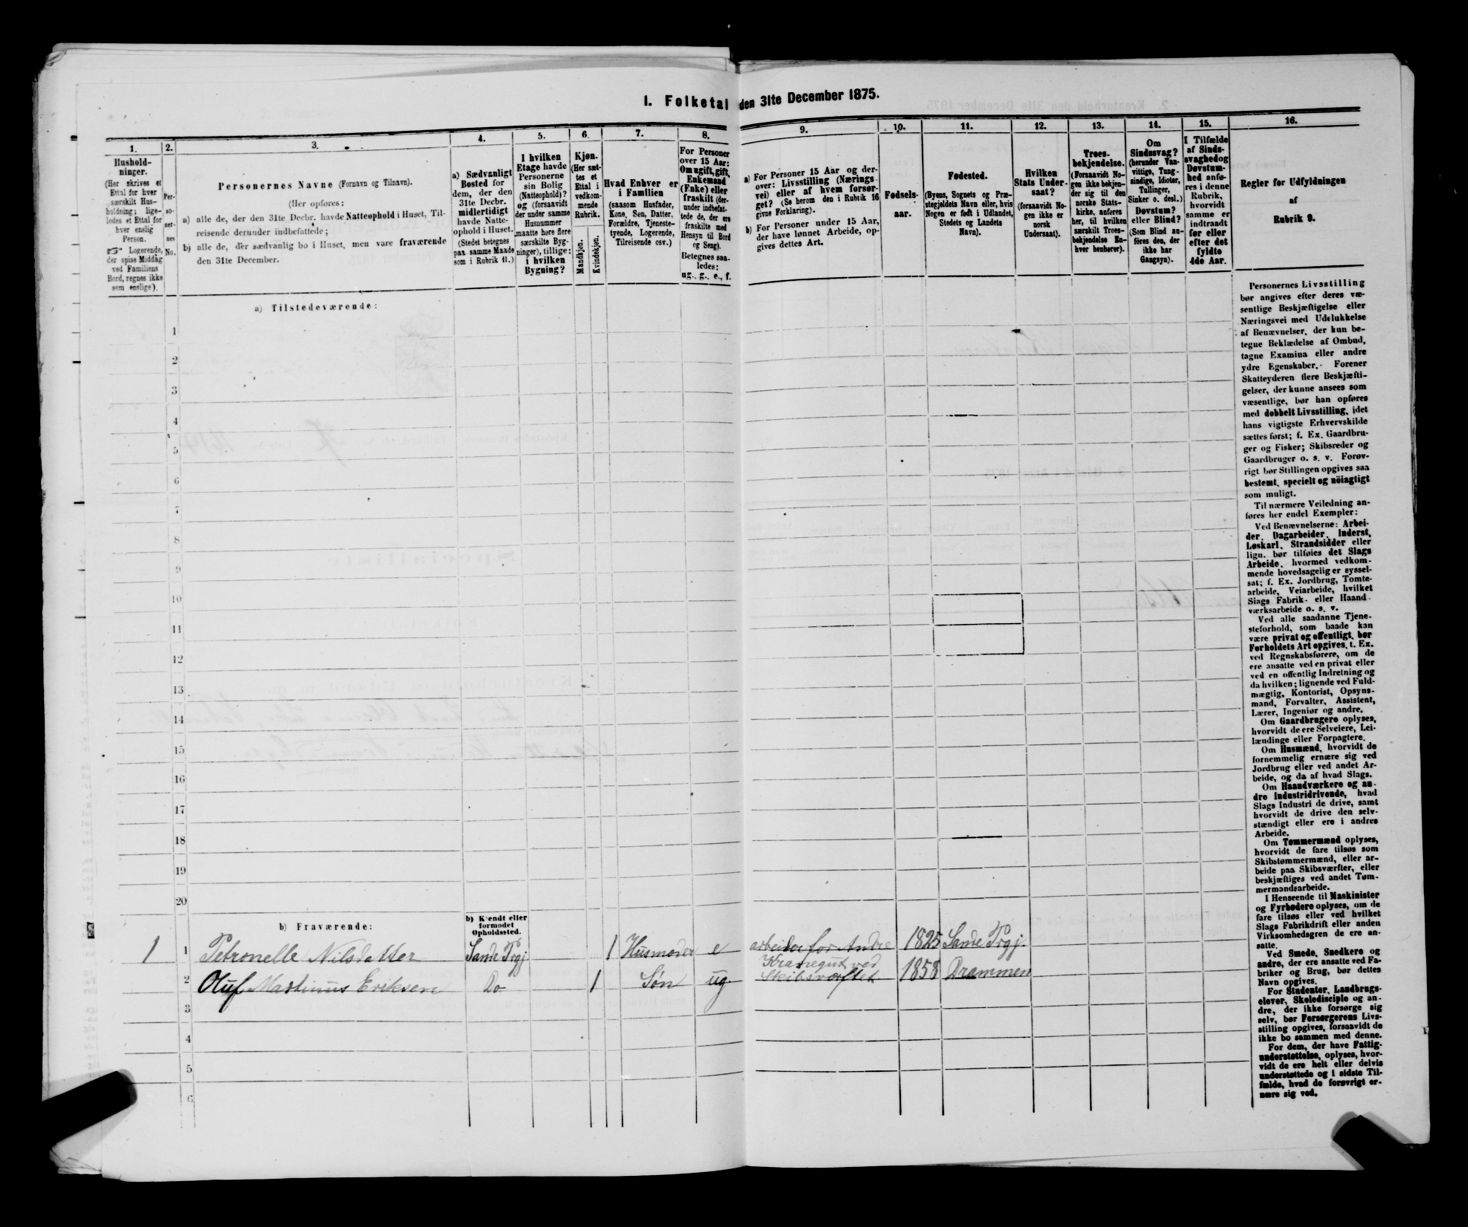 I. Folketal den 31te December 1875.
1.
2.
3.
4.
5.
6.
7.
8.
9.
10.
11.
12.
13.
14.
15.
16.
Hushold-
ninger.
(Her skrives et
Ettal for hver
særskilt Hus-
holdning; lige-
ledes et Ettal for
hver enslig
Person.
☞ Logerende,
der spise Middag
ved Familiens
Bord, regnes ikke
som enslige).
Per-
so-
ner-
nes
No.
Personernes Navne (Fornavn og Tilnavn).
(Her opføres:
a) alle de, der den 31te Decbr. havde Natteophold i Huset, Til-
reisende derunder indbefattede;
b) alle de, der sædvanlig bo i Huset, men vare fraværende
den 31te December.
a) Sædvanligt
Bosted for
dem, der den
31te Decbr.
midlertidigt
havde Natte-
ophold i Huset.
(Stedet betegnes
paa samme Maade
som i Rubrik 11.)
I hvilken
Etage havde
Personerne
sin Bolig
(Natteophold)?
og (forsaavidt
der under samme
Husnummer
maatte høre flere
særskilte Byg-
ninger), tillige:
i hvilken
Bygning?
Kjøn.
(Her sæt-
tes et
Ettal i
vedkom-
mende
Rubrik.
Mandkjøn.
Kvindekjøn.
Hvad Enhver er
i Familien
(saasom Husfader,
Kone, Søn, Datter,
Forældre, Tjeneste-
tyende, Logerende,
Tilreisende osv.)
For Personer
over 15 Aar:
Om ugift, gift,
Enkemand
(Enke) eller
fraskilt (der-
under indbefat-
tede de, der ere
fraskilte med
Hensyn til Bord
og Seng).
Betegnes saa-
ledes:
ug., g., e., f.
a) For Personer 15 Aar og der-
over: Livsstilling (Nærings-
vei) eller af hvem forsør-
get? (Se herom den i Rubrik 16
givne Forklaring).
b) For Personer under 15 Aar,
der have lønnet Arbeide, op-
gives dettes Art.
Fødsels-
aar.
Fødested.
(Byens, Sognets og Præ-
stegjeldets Navn eller, hvis
Nogen er født i Udlandet,
Stedets og Landets
Navn).
Hvilken
Stats Under-
saat?
(forsaavidt No-
gen ikke er
norsk
Undersaat).
Troes-
bekjendelse.
(Forsaavidt No-
gen ikke bekjen-
der sig til den
norske Stats-
kirke, anføres
her, til hvilken
særskilt Troes-
bekjendelse En-
hver henhører).
Om
Sindssvag?
(herunder Van-
vittige, Tung-
sindige, Idioter,
Tullinger,
Sinker o. desl.)
Døvstum?
eller Blind?
(Som Blind an-
føres den, der
ikke har
Gangsyn).
I Tilfælde
af Sinds-
svaghed og
Døvstum-
hed anfø-
res i denne
Rubrik,
hvorvidt
samme er
indtraadt
før eller
efter det
fyldte
4de Aar.
Regler for Udfyldningen
af
Rubrik 9.
a) Tilstedeværende:
1
2
3
4
5
6
7
8
9
10
11
12
13
14
15
16
17
18
19
20
b) Fraværende:
b) Kjendt eller
formodet
Opholdssted.
1 1 Petronelle Nilsdatter Sande Prgj 1 Husmoder e arbeider for Andre 1825 Sande Prgj.
2 Oluf Martinus Eriksen Do 1 Søn ug Skibsværftet 1858 Drammen
3
4
5
6
Personernes Livsstilling
bør angives efter deres væ-
sentlige Beskjæftigelse eller
Næringsvei med Udelukkelse
af Benævnelser, der kun be-
tegne Beklædelse af Ombud,
tagne Examina eller andre
ydre Egenskaber. Forener
Skatteyderen flere Beskjæfti-
gelser, der kunne ansees som
væsentlige, bør han opføres
med dobbelt Livsstilling, idet
hans vigtigste Erhvervskilde
sættes først; f. Ex. Gaardbru-
ger og Fisker; Skibsreder og
Gaardbruger o. s. v. Forøv-
rigt bør Stillingen opgives saa
bestemt, specielt og nöiagtigt
som muligt.
Til nærmere Veiledning an-
føres her endel Exempler:
Ved Benævnelserne: Arbei-
der, Dagarbeider, Inderst,
Løskarl, Strandsidder eller
lign. bør tilføies det Slags
Arbeide, hvormed vedkom-
mende hovedsagelig er syssel-
sat; f. Ex. Jordbrug, Tomte-
arbeide, Veiarbeide, hvilket
Slags Fabrik- eller Haand-
værksarbeide o. s. v.
Ved alle saadanne Tjene-
steforhold, som baade kan
være privat og offentligt, bør
Forholdets Art opgives, t. Ex.
ved Regnskabsførere, om de
ere ansatte ved en privat eller
ved en offentlig Indretning og
da hvilken; lignende ved Fuld-
mægtig, Kontorist, Opsyns-
mand, Forvalter, Assistent,
Lærer, Ingeniør og andre.
Om Gaardbrugere oplyses,
hvorvidt de ere Selveiere, Lei-
lændinge eller Forpagtere.
Om Husmænd, hvorvidt de
fornemmelig ernære sig ved
Jordbrug eller ved andet Ar-
beide, og da af hvad Slags.
Om Haandværkere og an-
dre Industridrivende, hvad
Slags Industri de drive, samt
hvorvidt de drive den selv-
stændigt eller ere i andres
Arbeide.
Om Tømmermænd oplyses,
hvorvidt de fare tilsøs som
Skibstømmermænd, eller ar-
beide paa Skibsværfter, eller
beskjæftiges ved andet Tøm-
mermandsarbeide.
I Henseende til Maskinister
og Fyrbødere oplyses, om de
fare tilsøs eller ved hvilket
Slags Fabrikdrift eller anden
Virksomhedsgren de ere an-
satte.
Ved Smede, Snedkere og
andre, der ere ansatte ved Fa-
briker og Brug, bør dettes
Navn opgives.
For Studenter, Landbrugs-
elever, Skoledisciple og an-
dre, der ikke forsørge sig
selv, bør Forsørgerens Livs-
stilling opgives, forsaavidt de
ikke bo sammen med denne.
For dem, der have Fattig-
understøttelse, oplyses, hvor-
vidt de ere helt eller delvis
understøttede og i sidste Til-
fælde, hvad de forøvrigt er-
nære sig ved.